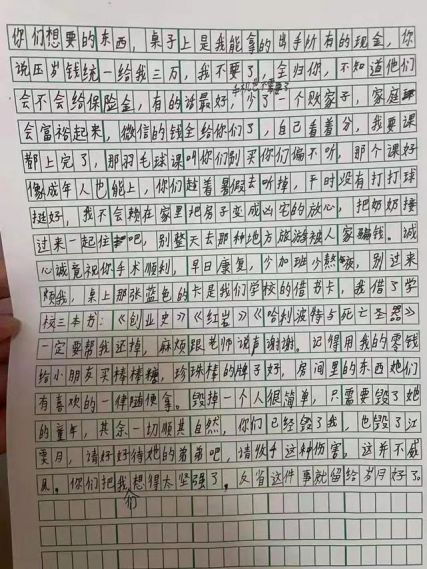 你们想要的东西，桌子上是我能拿的出手所有的现金，你
说压岁钱统一给我三万，我不要了，全归你，不知道他们
手机也不需要了
会不会给保险金，有的话最好，少了一个败家子，家庭
会富裕起来，微信的钱全给你们了，自己看着分，我要课
都上完了，那羽毛球课叫你们别买你们偏不听，那个课好
像成年人也能上，你们趁着暑假去听掉，平时没有打打球
挺好，我不会赖在家里把房子变成凶宅的放心，把奶奶接
过来一起住吧，别整天去那种地方旅游被人家骗钱。诚
心诚意祝你手术顺利，早日康复，少加班少熬夜，别过来
烦我，桌上那张蓝色的卡是我们学校的借书卡，我借了学
校三本书：《创业史》《红岩》《哈利波特与死亡圣器》
一定要帮我还掉，麻烦跟老师说声谢谢。记得用我的零钱
给小朋友买棒棒糖，珍珠棒的牌子好，房间里的东西她们
有喜欢的一律随便拿。毁掉一个人很简单，只需要毁了她
的童年，其余一切顺其自然，你们已经毁了我，也毁了江
要月，请好好待她的弟弟吧，请收手这种伤害。这并不威
风。你们把我们想得太坚强了，反省这件事就留给岁月好了。